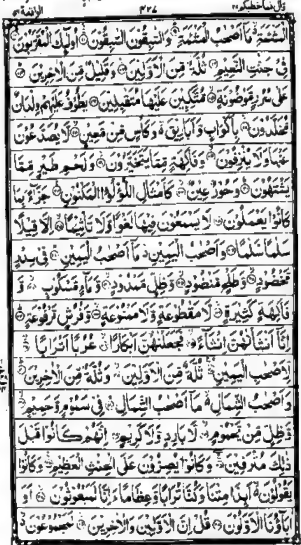 قال فما خطبكم ٢٧ ٤٢٧ الواقعة ٥٦
الْمَشْـَٔمَةِ مَآ اَصْحٰبُ الْمَشْـَٔمَةِ وَالسّٰبِقُوْنَ السّٰبِقُوْنَ اُولٰٓئِكَ الْمُقَرَّبُوْنَ
فِیْ جَنّٰتِ النَّعِیْمِ ثُلَّةٌ مِّنَ الْاَوَّلِیْنَ وَقَلِیْلٌ مِّنَ الْاٰخِرِیْنَ
عَلٰی سُرُرٍ مَّوْضُوْنَةٍ مُّتَّكِـِٕیْنَ عَلَیْهَا مُتَقٰبِلِیْنَ یَطُوْفُ عَلَیْهِمْ وِلْدَانٌ
مُّخَلَّدُوْنَ بِاَكْوَابٍ وَّاَبَارِیْقَ وَكَاْسٍ مِّنْ مَّعِیْنٍ لَّا یُصَدَّعُوْنَ
عَنْهَا وَلَا یُنْزِفُوْنَ وَفَاكِهَةٍ مِّمَّا یَتَخَیَّرُوْنَ وَلَحْمِ طَیْرٍ مِّمَّا
یَشْتَهُوْنَ وَحُوْرٌ عِیْنٌ كَاَمْثَالِ اللُّؤْلُؤِ الْمَكْنُوْنِ جَزَآءًۢ بِمَا
كَانُوْا یَعْمَلُوْنَ لَا یَسْمَعُوْنَ فِیْهَا لَغْوًا وَّلَا تَاْثِیْمًا اِلَّا قِیْلًا
سَلٰمًا سَلٰمًا وَاَصْحٰبُ الْیَمِیْنِ مَآ اَصْحٰبُ الْیَمِیْنِ فِیْ سِدْرٍ
مَّخْضُوْدٍ وَّطَلْحٍ مَّنْضُوْدٍ وَّظِلٍّ مَّمْدُوْدٍ وَّمَآءٍ مَّسْكُوْبٍ وَّ
فَاكِهَةٍ كَثِیْرَةٍ لَّا مَقْطُوْعَةٍ وَّلَا مَمْنُوْعَةٍ وَّفُرُشٍ مَّرْفُوْعَةٍ
اِنَّآ اَنْشَاْنٰهُنَّ اِنْشَآءً فَجَعَلْنٰهُنَّ اَبْكَارًا عُرُبًا اَتْرَابًا
لِّاَصْحٰبِ الْیَمِیْنِ ثُلَّةٌ مِّنَ الْاَوَّلِیْنَ وَثُلَّةٌ مِّنَ الْاٰخِرِیْنَ
وَاَصْحٰبُ الشِّمَالِ مَآ اَصْحٰبُ الشِّمَالِ فِیْ سَمُوْمٍ وَّحَمِیْمٍ
وَّظِلٍّ مِّنْ یَّحْمُوْمٍ لَّا بَارِدٍ وَّلَا كَرِیْمٍ اِنَّهُمْ كَانُوْا قَبْلَ
ذٰلِكَ مُتْرَفِیْنَ وَكَانُوْا یُصِرُّوْنَ عَلَی الْحِنْثِ الْعَظِیْمِ وَكَانُوْا
یَقُوْلُوْنَ اَىِٕذَا مِتْنَا وَكُنَّا تُرَابًا وَّعِظَامًا ءَاِنَّا لَمَبْعُوْثُوْنَ اَوَ
اٰبَآؤُنَا الْاَوَّلُوْنَ قُلْ اِنَّ الْاَوَّلِیْنَ وَالْاٰخِرِیْنَ لَمَجْمُوْعُوْنَ